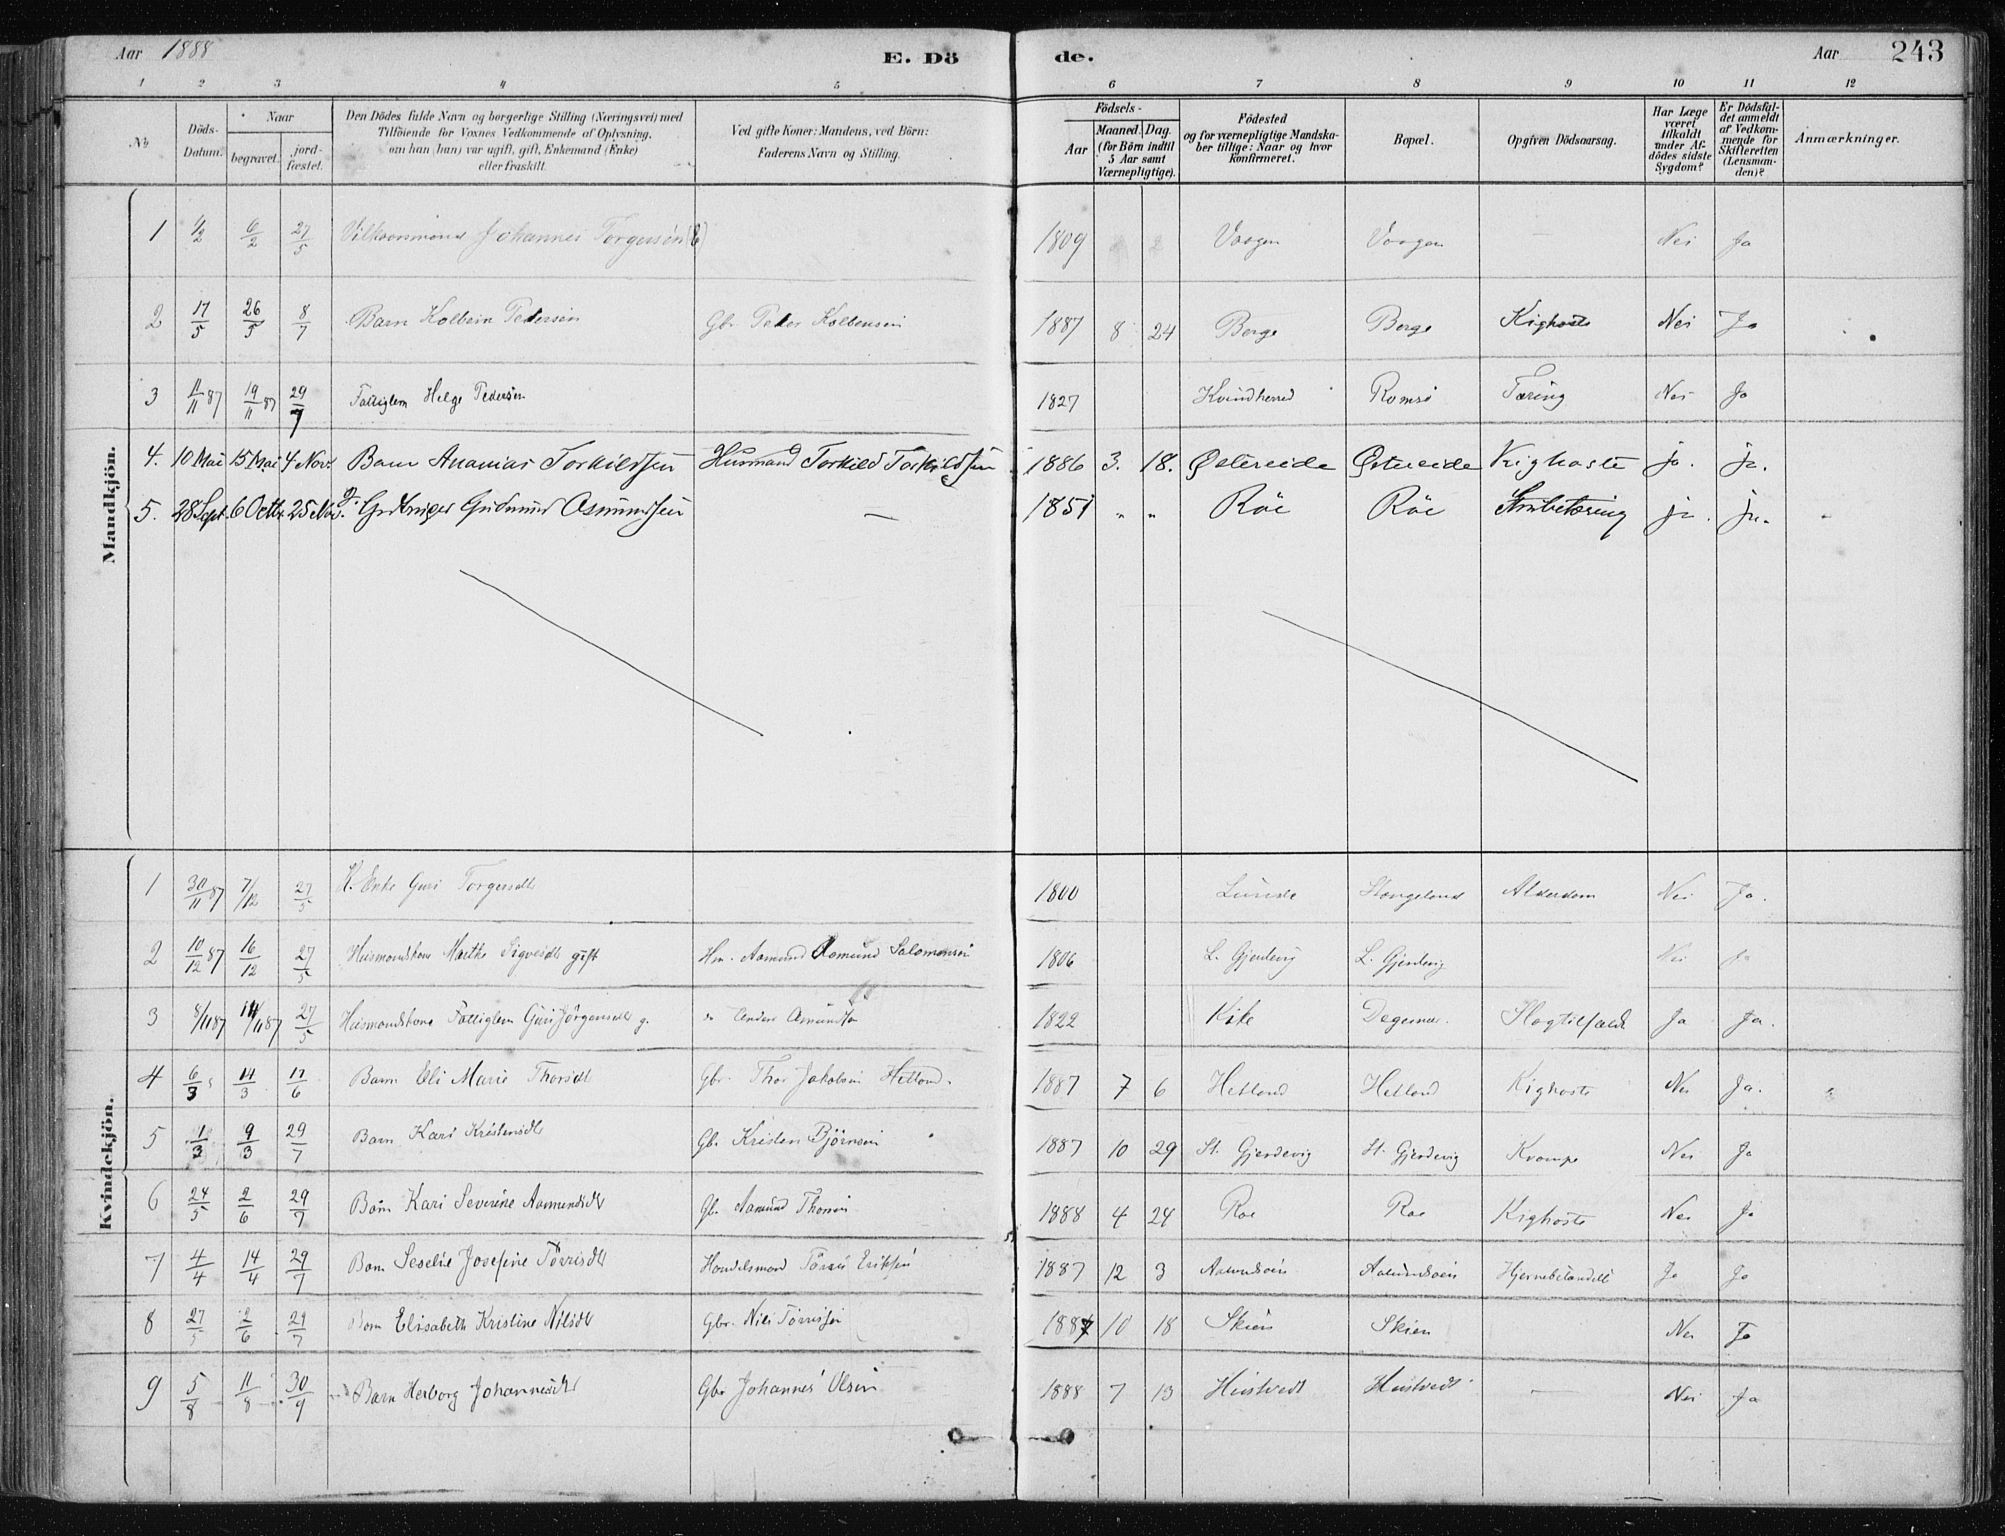 Aar 1888 E. Dö de. Aar 243
1 2 3 4 5 6 7 8 9 10 11 12
No
Döds-Datum.
Naar
begravet.
jord-fæstet.
Den Dödes fulde Navn og borgerlige Stilling (Næringsvei) med
Tilföiende for Voxnes Vedkommende af Oplysning,
om han (hun) var ugift, gift, Enkemand (Enke)
eller fraskilt.
Ved gifte Koner: Mandens, ved Börn:
Faderens Navn og Stilling.
Födsels-
Aar
Maaned. Dag.
(for Börn indtil
5 Aar samt
Værnepligtige).
Födested
og for værnepligtige Mandska-
ber tillige: Naar og hvor
Konfirmeret.
Bopæl.
Opgiven Dödsaarsag.
Har Læge
været
tilkaldt
under Af-
dödes sidste
Sygdom?
Er Dödsfal-
det anmeldt
af Vedkom-
mende for
Skifteretten
(Lensman-
den)?
Anmærkninger.
Mandkjön.
1 1/2 6/2 27/5 Vilkaarsmand Johannes Torgersen (E) 1809 Vaagen Vaagen — Nei Ja
2 17/5 26/5 8/7 Barn Kolbein Pedersen Gbr. Peder Kolbensen 1887 8 24 Borge Borge Kighoste Nei Ja
3 11/11 87 19/11 87 29/7 Fattiglem Helge Pedersen 1827 Kvindherred Romsö Tæring Nei Ja
4. 10 Mai 15 Mai 4 Nov. Barn Ananias Torkildsen Husmand Torkild Torkildsen 1886 3. 18. Östereide Östereide Kighoste ja. ja.
5. 28 Sept. 6 Octbr. 25 Nov. g. Grdbruger Gudmund Asmundsen — 1851 " " Röe Röe Strubetæring ja. ja. "
Kvindekjön.
1 30/11 87 7/12 27/5 K. Enke Guri Torgersdtr 1800 Lunde Haugeland Alderdom Nei Ja.
2 10/12 87 16/12 27/5 Husmandskone Marthe Sigvesdtr gift Hm. Aamund Aamund Salomonsen 1806 L. Gjerdevig L. Gjerdevig Nei Ja
3 8/11 87 14/11 87 27/5 Husmandskone Fattiglem Guri Jörgensdtr g. " Anders Amundsen 1822 Kike Degernæs. Slagtilfælde Ja Ja.
4 6/3 14/3 17/6 Barn Eli Marie Thorsdtr Gbr. Thor Jakobsen Hetland. 1887 7 6 Hetland Hetland Kighoste Nei Ja. "
5 1/3 9/3 29/7 Barn Kari Kristensdtr Gbr. Kristen Björnsen 1887 10 29 St. Gjerdevig St. Gjerdevig Krampe Nei Ja
6 24/5 2/6 29/7 Barn Kari Severine Aamundsdtr Gbr. Aamund Thorsen 1888 4 24 Roe Roe Kighoste Nei Ja
7 4/4 14/4 29/7 Barn Seselie Josefine Törrisdtr Handelsmand Törris Eriksen 1887 12 3 Aakundsøen Aakundsøen Hjernebetændelse Ja Ja
8 27/5 2/6 29/7 Barn Elisabeth Kristine Nilsdtr Gbr. Nils Törrissen 1887 10 18 Skien Skien Nei Ja
9 5/8 11/8 30/9 Barn Herborg Johannesdtr Gbr Johannes Olsen 1888 7 13 Hustvedt Hustvedt — Nei Ja